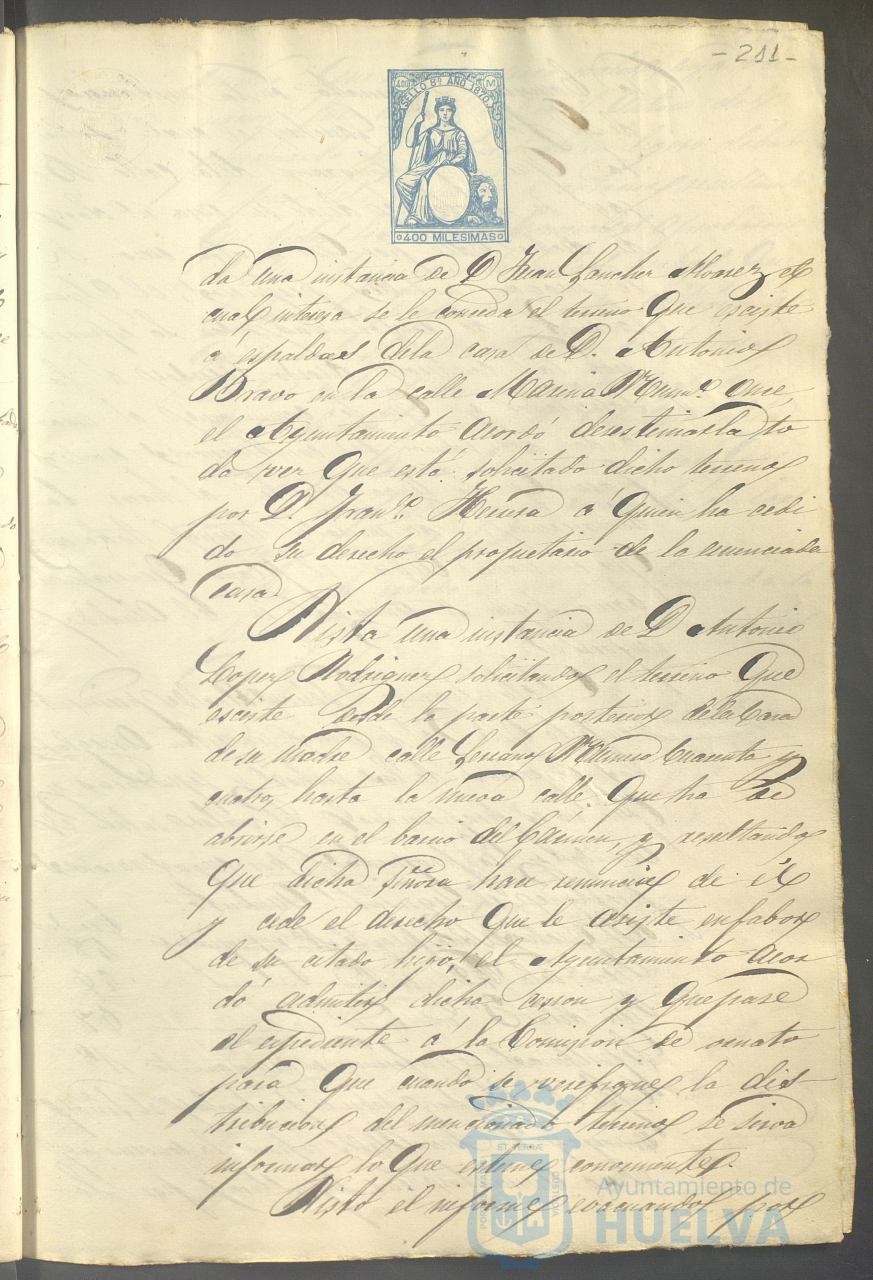 - 211 -
SELLO 8º AÑO 1870
400 MILESIMAS
da una instancia de D. Juan Sanchez Alvarez el
cual interesa se le conceda el terreno que esciste
á espaldas de la casa de D. Antonio
Bravo en la calle Marina Num.º once,
el Ayuntamiento acordó desestimarla to
da vez que está solicitado dicho terreno
por D. Fran.co á quien ha cedi
do su derecho el propietario de la enunciada
casa.
Vista una instancia de D. Antonio
Lopez Rodriguez solicitando el terreno que
esciste desde la parte posterior de la Casa
de su madre calle Numero Cuarenta y
cuatro, hasta la nueva calle que ha de
abrirse en el barrio del Cármen, y resultando
que dicha Señora hace renuncia de él
y cede el derecho que le asiste en fabor
de su citado hijo, el Ayuntamiento acor
dó admitir dicha cesion y que pase
el espediente á la Comision de ornato
para que cuando se verifique la dis-
tribucion del mencionado terreno se sirva
informar lo que estime conveniente.
Visto el informe evacuando por
Ayuntamiento de
HUELVA